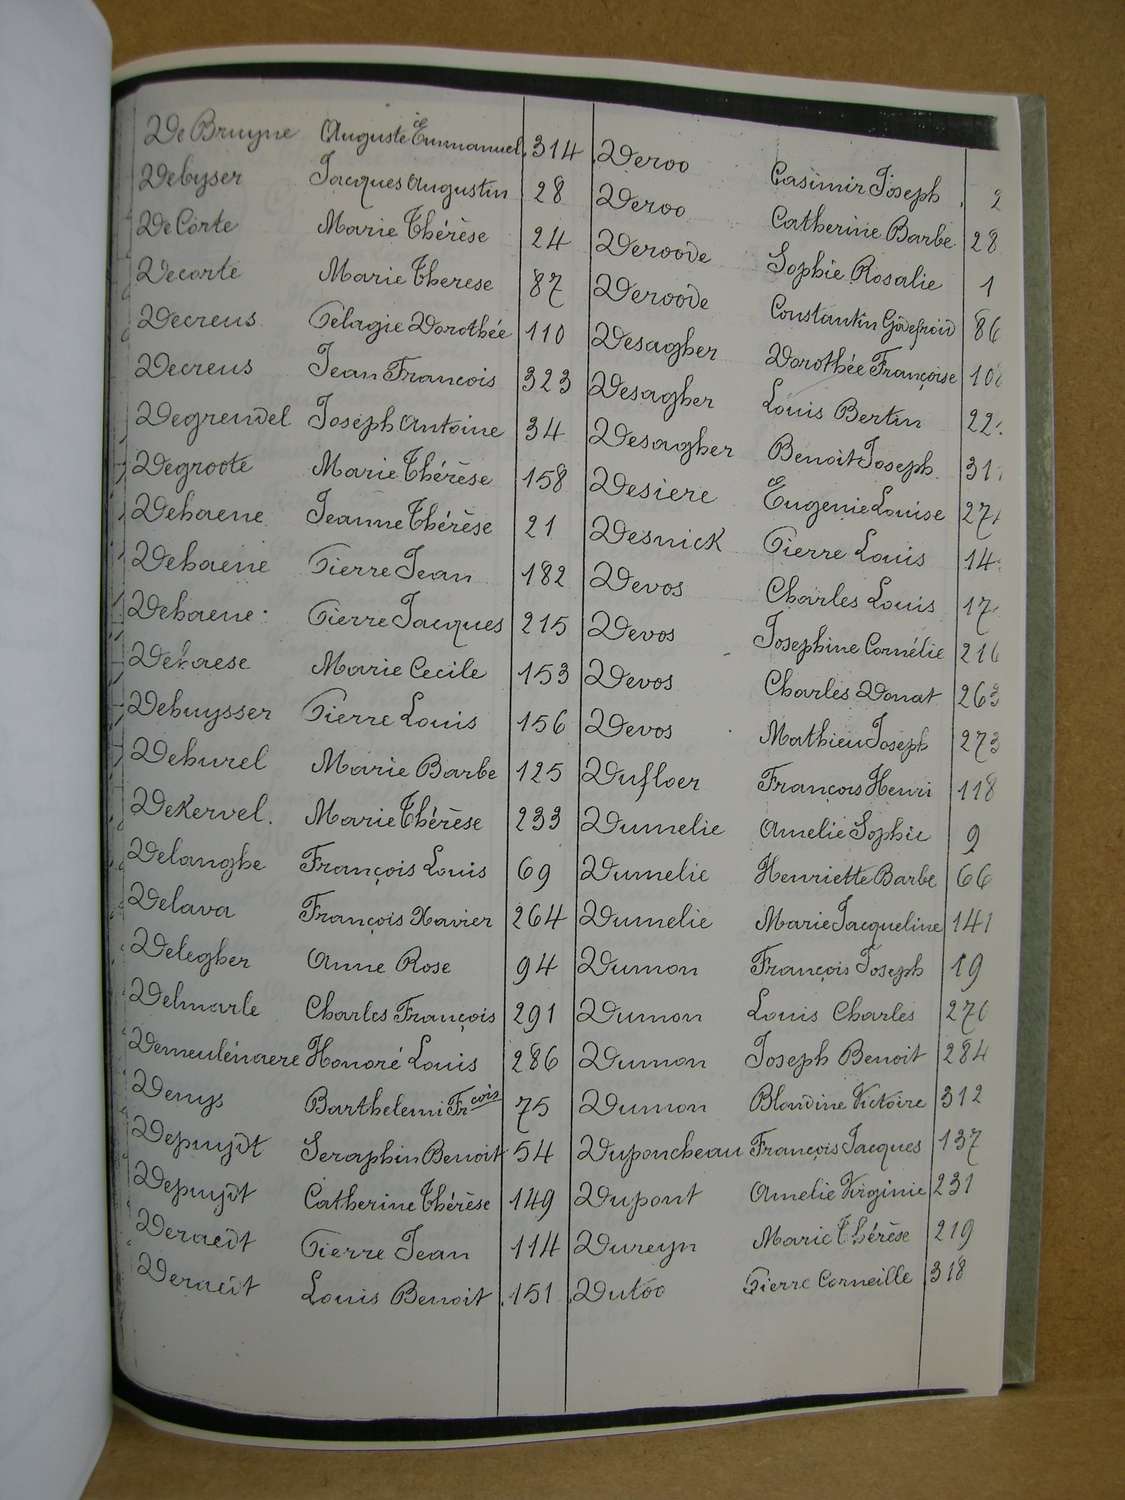 DeBruyne Auguste Emmanuel 314
Debyser Jacques Augustin 28
DeCorte Marie Thérèse 24
Decorte Marie Therese 87
Decreus Pélagie Dorothée 110
Decreus Jean François 323
Degrendel Joseph Antoine 34
Degroote Marie Thérèse 158
Dehaene Jeanne Thérèse 21
Dehaene Pierre Jean 182
Dehaene Pierre Jacques 215
Dekaese Marie Cecile 153
Dehuysser Pierre Louis 156
Dehurel Marie Barbe 125
DeKervel. Marie Thérèse 233
Delanghe François Louis 69
Delava François Xavier 264
Delegher Anne Rose 94
Delmarle Charles François 291
Demeulénaere Honoré Louis 286
Denys Barthelemi Frcois 75
Depuydt Seraphin Benoit 54
Depuydt Catherine Thérèse 149
Deraedt Pierre Jean 114
Deraedt Louis Benoit 151
Deroo Casimir Joseph
Deroo Catherine Barbe 28
Deroode Sophie Rosalie 1
Deroode Constantin Godefroid 86
Desagher Dorothée Françoise
Desagher Louis Bertin
Desagher Benoit Joseph
Desiere Eugenie Louise
Desnick Pierre Louis
Devos Charles Louis
Devos Josephine Cornélie
Devos Charles Donat 263
Devos Mathieu Joseph 273
Dufloer François Henri 118
Dumelie Amelie Sophie 9
Dumelie Henriette Barbe 66
Dumelie Marie Jacqueline 141
Dumon François Joseph 19
Dumon Louis Charles
Dumon Joseph Benoit 284
Dumon Blondine Victoire 312
Duponcheau François Jacques 137
Dupont Amelie Virginie 231
Dureyn Marie Thérèse 219
Dutoo Pierre Corneille 318